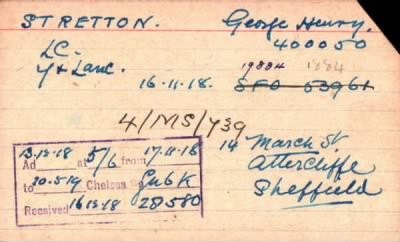 STRETTON. George Henry.
400050
LC. 19884 1884
Y & Lanc. 16.11.18. SFO 53961
4/MS/739
13.12.18 17.11.18 14 March St.
Ad at 5/6 from Attercliffe
to 20.5.19 Chelsea Sheffield
Received 16.12.18 28580